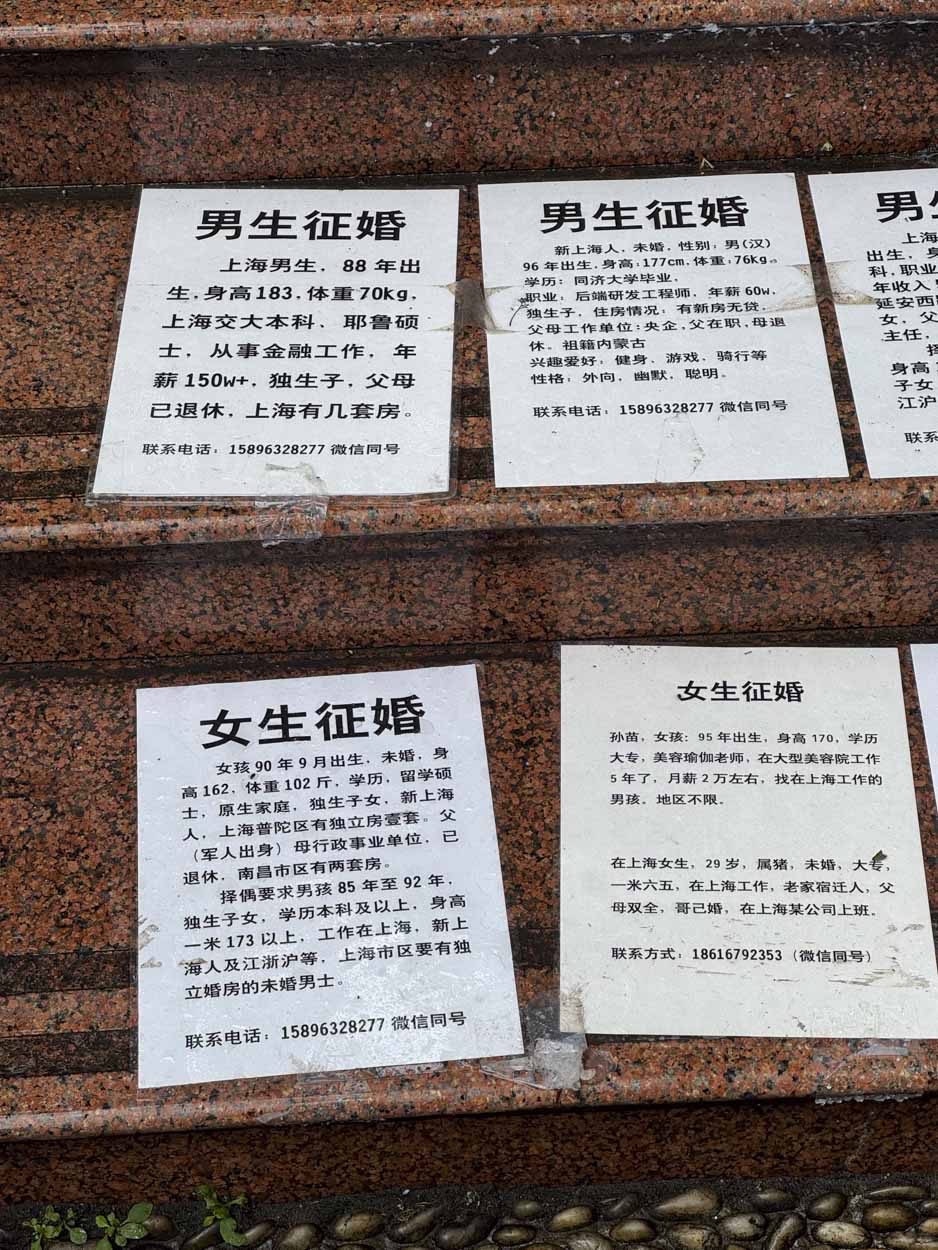 男生征婚
上海男生，88年出
生，身高183，体重70kg，
上海交大本科、耶鲁硕
士，从事金融工作，年
薪150w+，独生子，父母
已退休，上海有几套房。
联系电话：15896328277 微信同号
男生征婚
新上海人，未婚，性别：男(汉)
96年出生，身高:177cm，体重:76kg。
学历：同济大学毕业，
职业：后端研发工程师，年薪60w，
独生子，住房情况：有新房无贷，
父母工作单位:央企，父在职，母退
休。祖籍内蒙古
兴趣爱好：健身、游戏、骑行等
性格：外向，幽默，聪明。
联系电话：15896328277 微信同号
男
上海
出生，身
科，职业
年收入
延安西
女，父
主任，
择
身高
子女
江沪
联系
女生征婚
女孩90年9月出生，未婚，身
高162，体重102斤，学历，留学硕
士，原生家庭，独生子女，新上海
人，上海普陀区有独立房壹套。父
（军人出身）母行政事业单位，已
退休，南昌市区有两套房。
择偶要求男孩85年至92年，
独生子女，学历本科及以上，身高
一米173以上，工作在上海，新上
海人及江浙沪等，上海市区要有独
立婚房的未婚男士。
联系电话：15896328277 微信同号
女生征婚
孙苗，女孩：95年出生，身高170，学历
大专，美容瑜伽老师，在大型美容院工作
5年了，月薪2万左右，找在上海工作的
男孩。地区不限。
在上海女生，29岁，属猪，未婚，大专，
一米六五，在上海工作，老家宿迁人，父
母双全，哥己婚，在上海某公司上班。
联系方式：18616792353（微信同号）